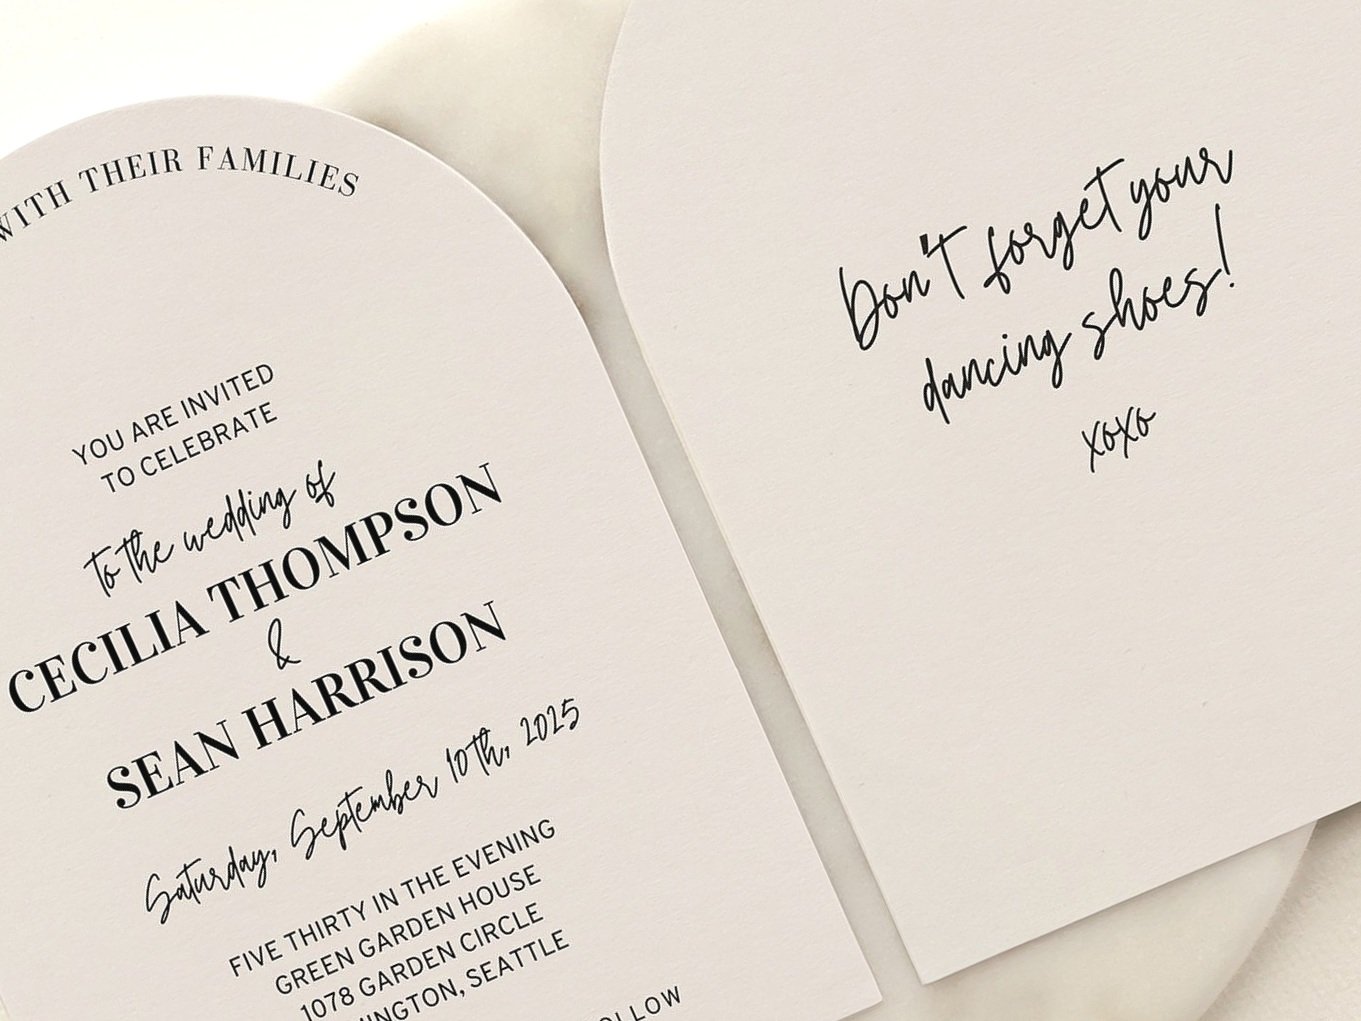 WITH THEIR FAMILIES
YOU ARE INVITED
TO CELEBRATE
to the wedding of
CECILIA THOMPSON
&
SEAN HARRISON
Saturday, September 10th, 2025
FIVE THIRTY IN THE EVENING
GREEN GARDEN HOUSE
1078 GARDEN CIRCLE
SEATTLE
Don't forget your
dancing shoes!
xoxo